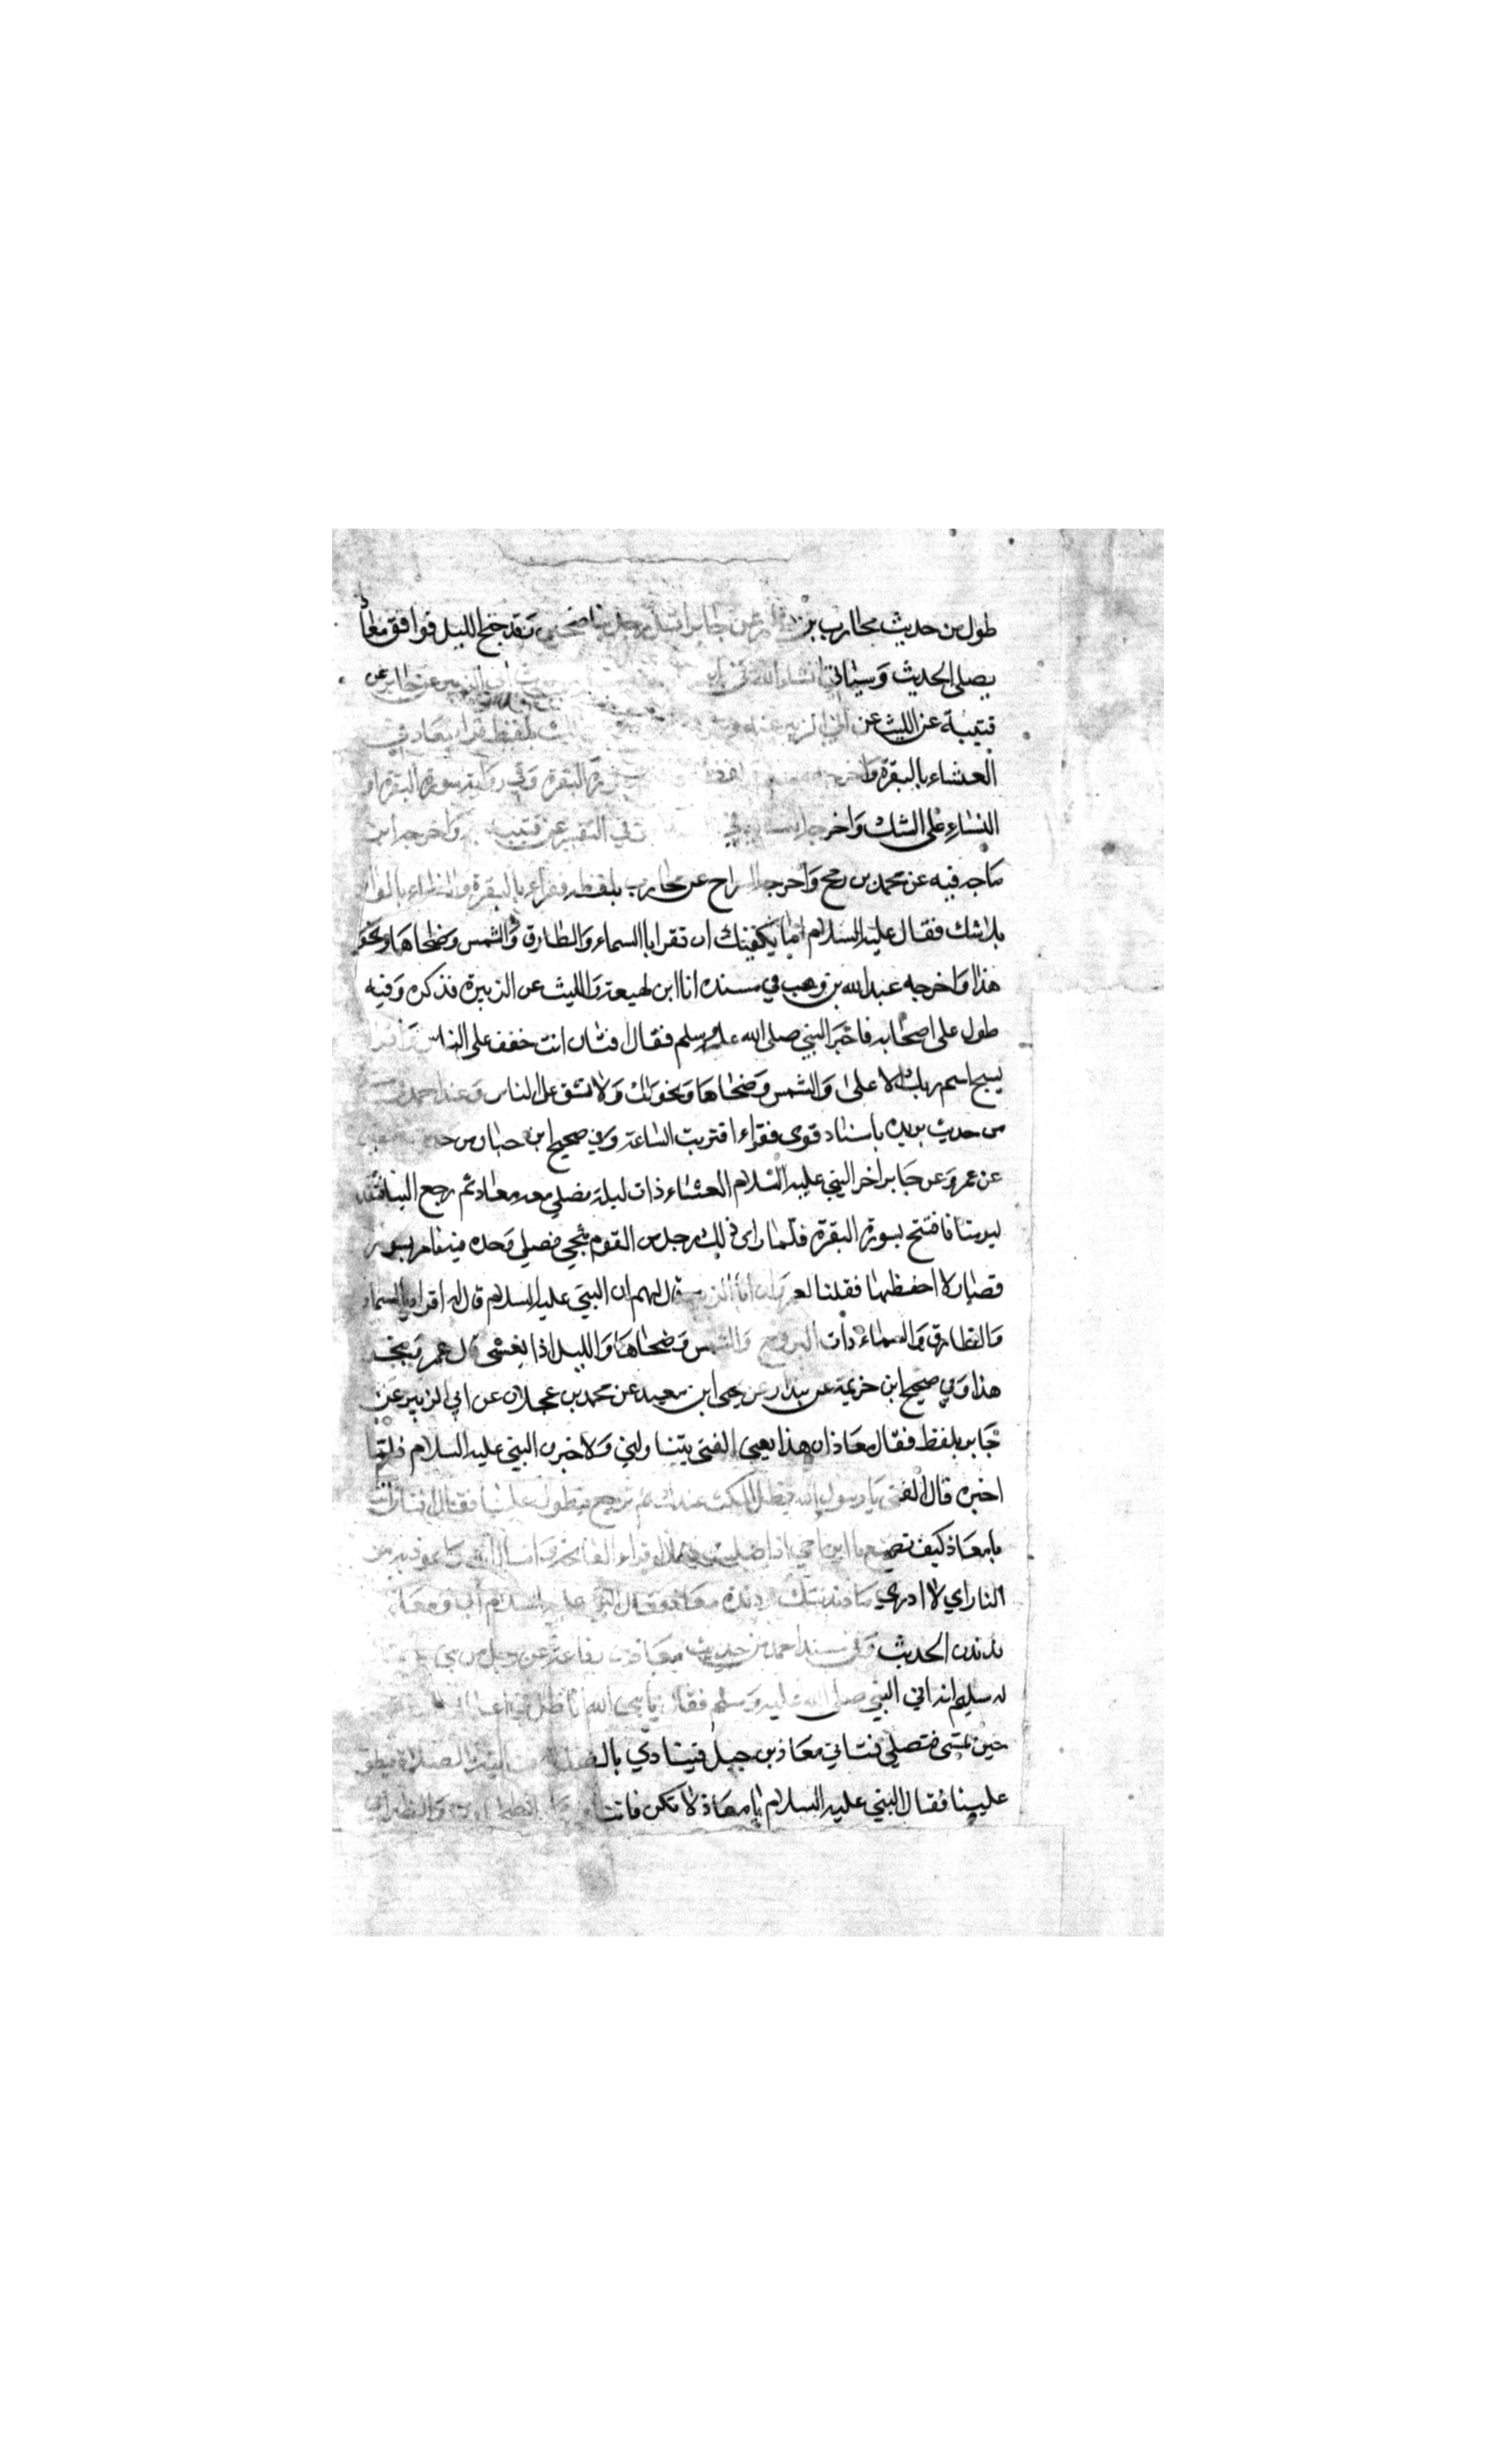 طول من حديث محارب بن عن جابر اقبل رجل بناضحين وقد جنح الليل فوافق معاذا
يصلي الحديث وسياتي انشا الله عن جابر عن
قتيبة عن الليث عن ابي الزبير عنه بلفظ قرا معاذ في
العشاء بالبقرة واخرجه البقرة وفي رواية سورة البقرة او
النساء على الشك واخرجه في وفي التفسير عن قتيبة واخرجه ابن
ماجه فيه عن محمد بن رمح واخرجه السراح عن محارب بلفظ فقراء بالبقرة والنساء بالواو
بلا شك فقال عليه السلام اما يكفيك ان تقرا باالسماء والطارق والشمس وضحاها ونحو
هذا واخرجه عبد الله بن وهب في مسنده انا ابن لهيعة والليث عن الزبيرة فذكره وفيه
طول على اصحابه فاخبر النبي صلى الله عليه وسلم فقال افتان انت خفف على الناس واقرا
سبح اسم ربك الاعلى والشمس وضحاها ونحو ذلك ولا تشق على الناس وعند احمد
من حديث بريده باسناد قوى فقراء اقتربت الساعة وفي صحيح ابن حبان من حديث
عن عمرو عن جابر اخر النبي عليه السلام العشاء ذات ليلة فصلي معه معاذ ثم رجع الينا فتقدم
ليومنا فافتتح بسورة البقرة فلما راى ذلك رجل من القوم تنحي فصلي وحده فيه فامره بسور
قصار لا احفظها فقلنا لعمرو ان ابا الزبير قال لهم ان النبي عليه السلام قال له اقرا بالسماء
والطارق والسماء ذات البروج والشمس وضحاها والليل اذا يغشى قال عمرو بنحو
هذا وفي صحيح ابن خزيمة عن بندار عن يحيى ابن سعيد عن محمد بن عجلان عن ابي الزبير عن
جابر بلفظ فقال معاذ ان هذا يعني الفتى يتناولني ولاخبرن النبي عليه السلام فلما
اخبره قال الفتى يا رسول الله يطيل المكث عندك ثم يرجع فيطول علينا فقال افتان انت
يا معاذ كيف تصنع يا ابن اخي اذا صليت قال اقراء الفاتحة واسال الله واعوذ به من
النار اي لا ادري ما دندنتك ودندنة معاذ فقال النبي عليه السلام اني ومعاذ
ندندن الحديث وفي مسند احمد من حديث معاذ بن رفاعة عن رجل من بني
له سليم انه اتى النبي صلى الله عليه وسلم فقال يا نبي الله انا نظل في اعمالنا
حين نمسى فنصلي فناتي معاذ بن جبل فينادي بالصلاة الصلاة فيطول
علينا فقال النبي عليه السلام يا معاذ لا تكن فاتنا والطبراني